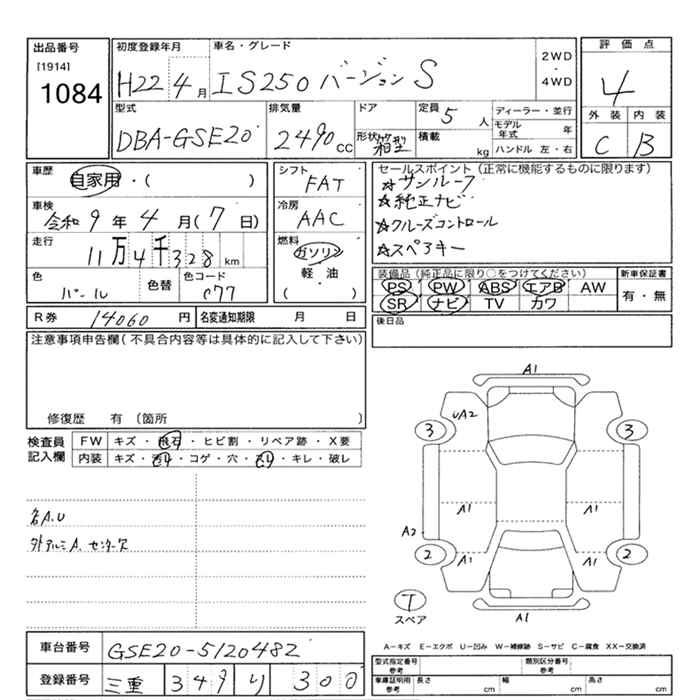 出品番号
[1914]
1084
初度登録年月
H22 4月
車名・グレード
IS250 バージョン S
2WD
4WD
評価点
4
外装 内装
C B
型式
DBA-GSE20
排気量
2490 CC
ドア
形状
箱型
定員 5 人
積載 kg
ディーラー・並行
モデル年式 年
ハンドル 左・右
車歴
自家用・( )
車検
令和 9年 4月(7日)
走行
11万4千328 km
色
パール
色替
色コード
077
シフト
FAT
冷房
AAC
燃料
ガソリン
軽油
( )
セールスポイント(正常に機能するものに限ります)
☆サンルーフ
☆純正ナビ
☆クルーズコントロール
☆スペアキー
装備品(純正品に限り○をつけてください)
PS PW ABS エアB AW
SR ナビ TV カワ
新車保証書
有・無
R券 14060 円
名変通知期限 月 日
後日品
注意事項申告欄(不具合内容等は具体的に記入して下さい)
修復歴 有 (箇所 )
検査員記入欄
FW キズ・飛石・ヒビ割・リペア跡・X要
内装 キズ・汚れ・コゲ・穴・スレ・キレ・破レ
A.U
外アルミA.
A1
UA2
3 3
A1 A1
A2
2 2
A1 A1
T
スペア
A1
車台番号 GSE20-5120482
登録番号 三重 349 り 300
A-キズ E-エクボ U-凹み W-補修跡 S-サビ C-腐食 XX-交換済
型式指定番号 参考
類別区分番号 参考
車庫証明用 参考
長さ cm
幅 cm
高さ cm